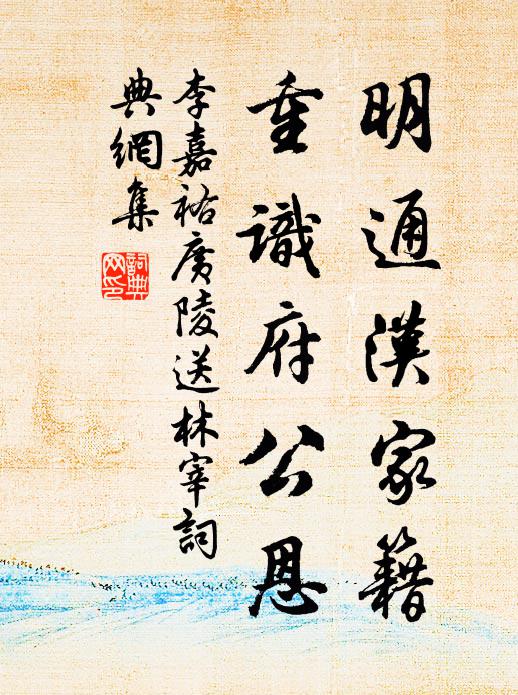 明通漢家籍
重識府公恩
李嘉祐廣陵送林宰詞
典網集
詞典網印